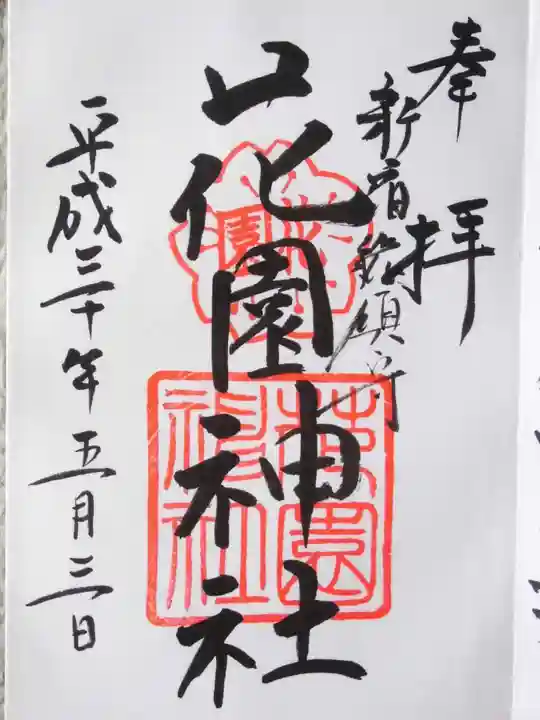 奉拝
新宿総鎮守
花園神社
花園
花園神社
平成三十年五月三日